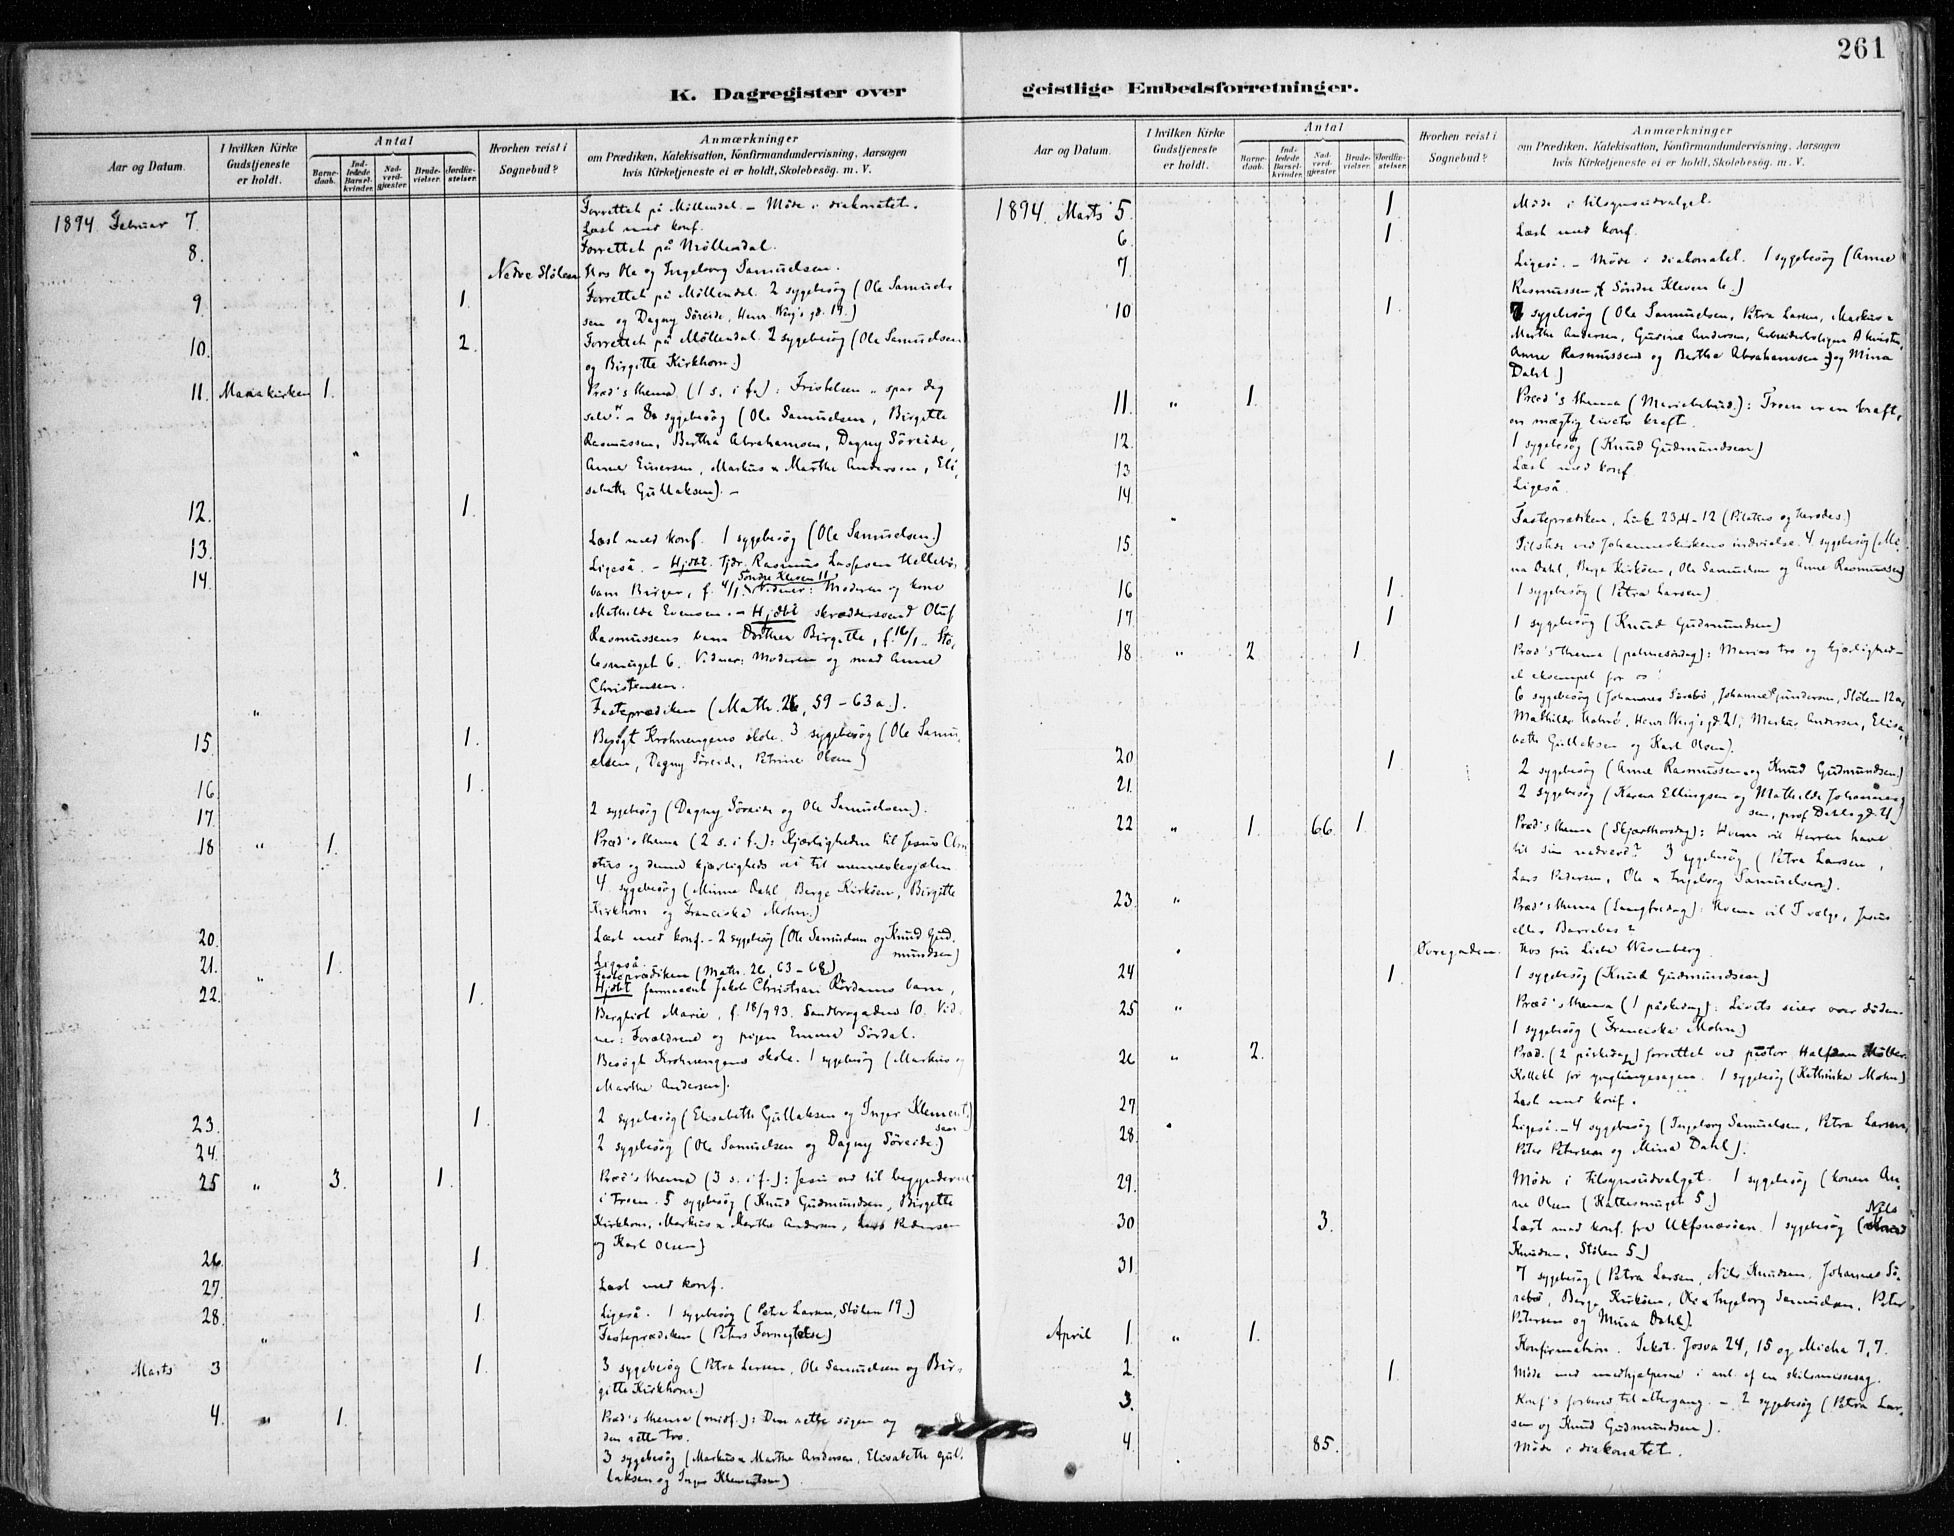 261
K. Dagregister over geistlige Embedsforretninger.
Aar og Datum.
I hvilken Kirke Gudstjeneste er holdt.
Antal
Barnedaab.
Indledede Barselkvinder.
Nadverdgjæster.
Brudevielser.
Jordfæstelser.
Hvorhen reist i Sognebud?
Anmærkninger
om Prædiken, Katekisation, Konfirmandundervisning, Aarsagen
hvis Kirketjeneste ei er holdt, Skolebesøg. m. V.
1894 Februar 7. Forrettet på Möllendal. – Möde i diakonatet.
Læst med konf.
8. Forrettet på Möllendal.
Nedre Stölen Hos Ole og Ingeborg Samuelsen.
9 1. Forrettet på Möllendal. 2 sygebesög (Ole Samuel-
sen og Dagny Söreide, Henr. Wergs gd. 19.)
10. 2. Forrettet på Möllendal. 2 sygebesög (Ole Samuelsen
og Birgitte Kirkhorn.)
11. Mariakirken 1. Præd's thema (1 s. i f.): Fristelsen „spar dig
selv". – 8 sygebesög (Ole Samuelsen, Birgitte
Rasmussen, Bertha Abrahamsen, Dagny Söreide,
Anne Einersen, Markus & Marthe Andersen, Eli-
sabeth Gullaksen). –
12. 1.
13. Læst med konf. 1 sygebesög (Ole Samuelsen.)
14. Ligeså. – Hjdbt. Rasmus Lassesen Hellebös
barn Birger, f. 4/1. Söndre Kleven 11 Vidner: Moderen og kone
Mathilde Evensen. – Hjdbt skræddersvend Oluf
Rasmussens barn Dorthea Birgitte, f. 16/1. Stö-
lesmuget 6. Vidner: Moderen og mad Anne
Christensen.
" Fasteprædiken (Math. 26, 59–63a.).
15. 1. Besögt Krohnengens skole. 3 sygebesög (Ole Samu-
elsen, Dagny Söreide, Petrine Olsen)
16. 1.
17. 2 sygebesög (Dagny Söreide og Ole Samuelsen).
18 " 1. Præd's thema (2 s. i f.): Kjærligheden til Jesus Chri-
stus og denne kjærligheds vei til menneskesjælen.
4 sygebesög (Minna Dahl, Berge Kirköen, Birgitte
Kirkhorn og Franciska Mohn.)
20. Læst med konf. – 2 sygebesög (Ole Samuelsen og Knud Gud-
mundsen)
21. 1. Ligeså.
" Fasteprædiken (Math. 26, 63–68)
22. 1. Hjdbt farmaceut Jakob Christian Rördams barn,
Bergliot Marie, f. 18/9 93. Sandbrogaden 10. Vid-
ner: Forældrene og pigen Emma Sördal.
Besögt Krohnengens skole. 1 sygebesög (Markus og
Marthe Andersen).
23. 1. 2 sygebesög (Elisabeth Gullaksen og Inger Klement-
sen)
24. 2 sygebesög (Ole Samuelsen og Dagny Söreide.)
25 " 3. 1. Præd's thema (3 s. i f.): Jesu ord til begynderne
i Troen. 5 sygebesög (Knud Gudmundsen, Birgitte
Kirkhorn, Markus & Marthe Andersen, Lars Pedersen
og Karl Olsen)
26. 1.
27. Læst med konf.
28. 1. Ligeså. 1 sygebesög (Petra Larsen, Stölen 19.)
" Fasteprædiken (Peters Fornegtelse)
Marts 3 1. 3 sygebesög (Petra Larsen, Ole Samuelsen og Bir-
gitte Kirkhorn.)
4. " 1. Præd's thema (midf.): Den rette sögen og
den rette tro.
3 sygebesög (Markus & Marthe Andersen, Elisabeth Gul-
laksen og Inger Klementsen).
Aar og Datum.
I hvilken Kirke Gudstjeneste er holdt.
Antal
Barnedaab.
Indledede Barselkvinder.
Nadverdgjæster.
Brudevielser.
Jordfæstelser.
Hvorhen reist i Sognebud?
Anmærkninger
om Prædiken, Katekisation, Konfirmandundervisning, Aarsagen
hvis Kirketjeneste ei er holdt, Skolebesøg. m. V.
1894. Marts 5. 1 Möde i tilsynsudvalget.
6. 1. Læst med konf.
7 Ligeså. – Möde i diakonatet. 1 sygebesög (Anne
Rasmussen, Söndre Kleven 6.)
10 1. 7 sygebesög (Ole Samuelsen, Petra Larsen, Markus &
Marthe Andersen, Gurine Andersen, Arbeiderboligen
Anne Rasmussen og Bertha Abrahamsen og Mina
Dahl)
11. " 1. Præd's thema (Mariæ bebud.): Troen er en kraft,
en mægtig livets kraft.
12. 1 sygebesög (Knud Gudmundsen)
13 Læst med konf.
14 Ligeså.
" Fasteprædiken, Luk 23,4–12 (Pilatus og Herodes.)
15. Tilstede ved Johanneskirkens indvielse. 4 sygebesög (Mi-
na Dahl, Berge Kirköen, Ole Samuelsen og Anne Rasmussen)
16 1. 1 sygebesög (Petra Larsen)
17. 1 1 sygebesög (Knud Gudmundsen)
18 " 2. 1. Præd's thema (palmesöndag): Marias tro og kjærlighed –
et eksempel for os!
6 sygebesög (Johannes Sörebö, Johanne Gundersen, Stölen 12a,
Mathilde, Henr Wergs gd 21, Markus Andersen, Elisa-
beth Gullaksen og Karl Olsen).
20 1. 2 sygebesög (Anne Rasmussen og Knud Gudmundsen.)
21. 2 sygebesög (Karen Ellingsen og Mathilde Johannes-
sen, prof Dahls gd 21)
22 " 1. 66 1. Præd's thema (Skjærthorsdag): Hvem vil Herren have
til sin nadverd? 3 sygebesög (Petra Larsen,
Lars Pedersen, Ole & Ingeborg Samuelsen).
23. " Præd's thema (Langfredag): Hvem vil I vælge, Jesus
eller Barrabas?
Övregaden. Hos frk Wesenberg.
24 1. 1 sygebesög (Knud Gudmundsen)
25 " Præd's thema (1 påskedag): Livets seier over döden.
1 sygebesög (Franciska Mohn)
26 " 2. Præd. (2 påskedag) forrettet ved pastor Halfdan Möller.
Kollekt for ynglingesagen. 1 sygebesög (Kathinka Mohn)
27 Læst med konf.
28. Ligeså. – 4 sygebesög (Ingeborg Samuelsen, Petra Larsen,
Peter Petersen og Mina Dahl).
29. Möde i tilsynsudvalget. 1 sygebesög (konen An-
ne Olsen (Kattesmuget 5)
30 3. Læst med konf. fra Ulfsnesöen. 1 sygebesög (Nils
Knudsen, Stölen 5)
31. 7 sygebesög (Petra Larsen, Nils Knudsen, Johannes Sö-
rebö, Berge Kirköen, Ole & Ingeborg Samuelsen, Peter
Petersen og Mina Dahl).
April 1. " 1. Konfirmation. Tekst. Josva 24, 15 og Micha 7,7.
2. 1. Möde med medhjelperne i anl. af en skilsmissesag.
3. Konf's forbered til altergang. – 2 sygebesög (Petra Lar-
sen og Knud Gudmundsen).
4. 85. Möde i diakonatet.